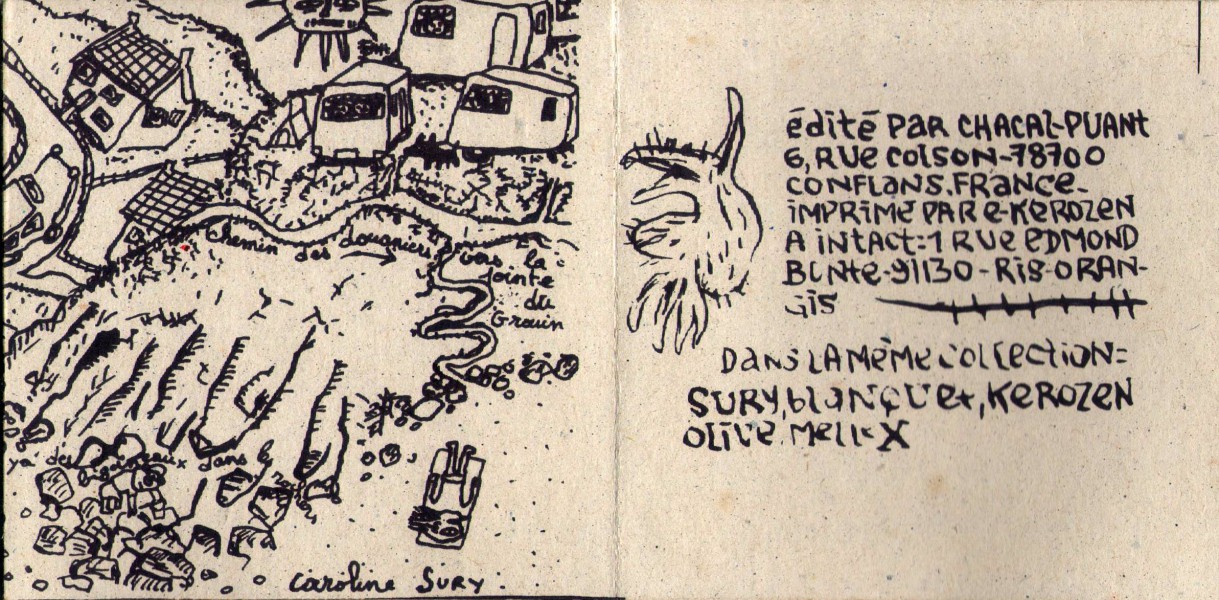 chemin des douaniers vers la
pointe
du
Grouin
ya des bigorneaux dans le
Caroline SURY.
édité PAR CHACAL-PUANT
6, RUE COLSON-78700
CONFLANS.FRANCE-
IMPRIMÉ PAR E-KEROZEN
A INTACT:1 RUE EDMOND
BONTE-91130-RIS-ORAN-
GIS
DANS LA MÊME COLLECTION=
SURY, BLANQUET, KEROZEN
OLIVE